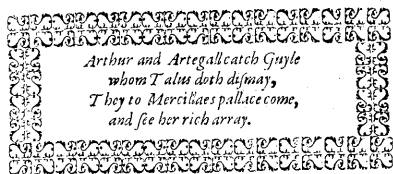 Arthur and Artegall catch Guyle
whom Talus doth diſmay,
They to Mercillaes pallace come,
and ſee her rich array.